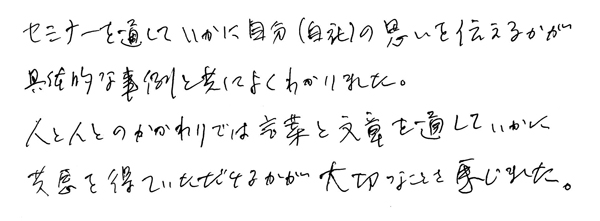 セミナーを通していかに自分(自社)の思いを伝えるかが
具体的な事例と共によくわかりました。
人と人とのかかわりでは言葉と文章を通していかに
共感を得ていただけるかが大切なことを感じました。